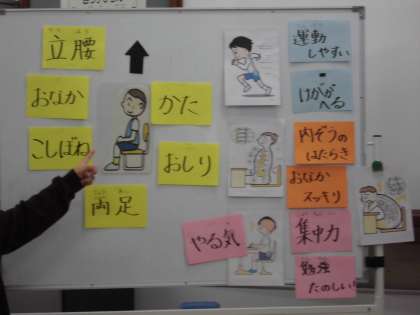 立腰
おなか
かた
こしぼね
おしり
両足
やる気
運動
しやすい
けがが
へる
内ぞうの
はたらき
おなか
スッキリ
集中力
勉強
たのしい!